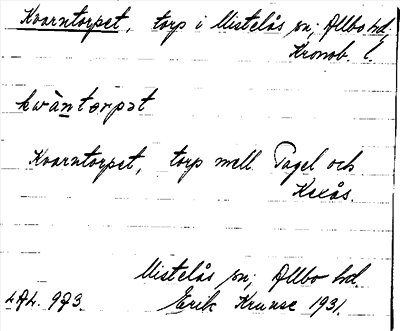 Kvarntorpet, torp i Mistelås sn; Allbo hd,
Kronob. l.
kwà̀ntɔrpət
Kvarntorpet, torp mell. Tagel och
Kexås.
Mistelås sn; Allbo hd.
Erik Krunse 1931.